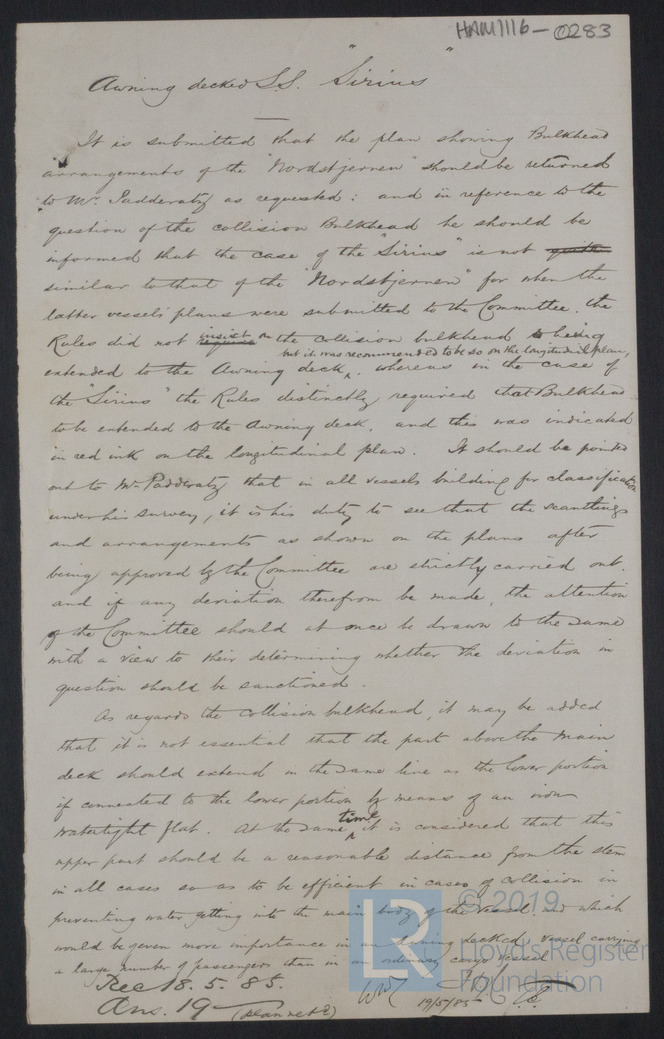 HAM1116-0283
Awning decked S.S. "Sirius"
It is submitted that the plan showing Bulkhead
arrangements of the "Nordstjernen" should be returned
to Mr. Padderatz as requested: and in reference to the
question of the collision Bulkhead he should be
informed that the case of the "Sirius" is not quite
similar to that of the "Nordstjernen" for when the
latter vessels' plans were submitted to the Committee, the
Rules did not require insist on the collision bulkhead to being
but it was recommended to be so on the longitudinal plan,
extended to the Awning deck, whereas in the case of
the "Sirius" the Rules distinctly required that Bulkhead
to be extended to the Awning deck, and this was indicated
in red ink on the longitudinal plan. It should be pointed
out to Mr. Padderatz that in all vessels building for classification
under his survey, it is his duty to see that the scantlings
and arrangements as shown on the plans after
being approved by the Committee are strictly carried out.
and if any deviation therefrom be made, the attention
of the Committee should at once be drawn to the same
with a view to their determining whether the deviation in
question should be sanctioned.
As regards the collision bulkhead, it may be added
that it is not essential that the part above the main
deck should extend in the same line as the lower portion
if connected to the lower portion by means of an iron
watertight flat. At the same time it is considered that this
upper part should be a reasonable distance from the stem
in all cases so as to be efficient in cases of collision in
preventing water getting into the main body of the vessel, and which
would be given more importance in an Awning decked vessel carrying
a large number of passengers than in an ordinary cargo vessel
Rec 18.5.85.
Ans. 19
(plan retd)
WW
19/5/85
LR
© 2019
Lloyd's Register
Foundation